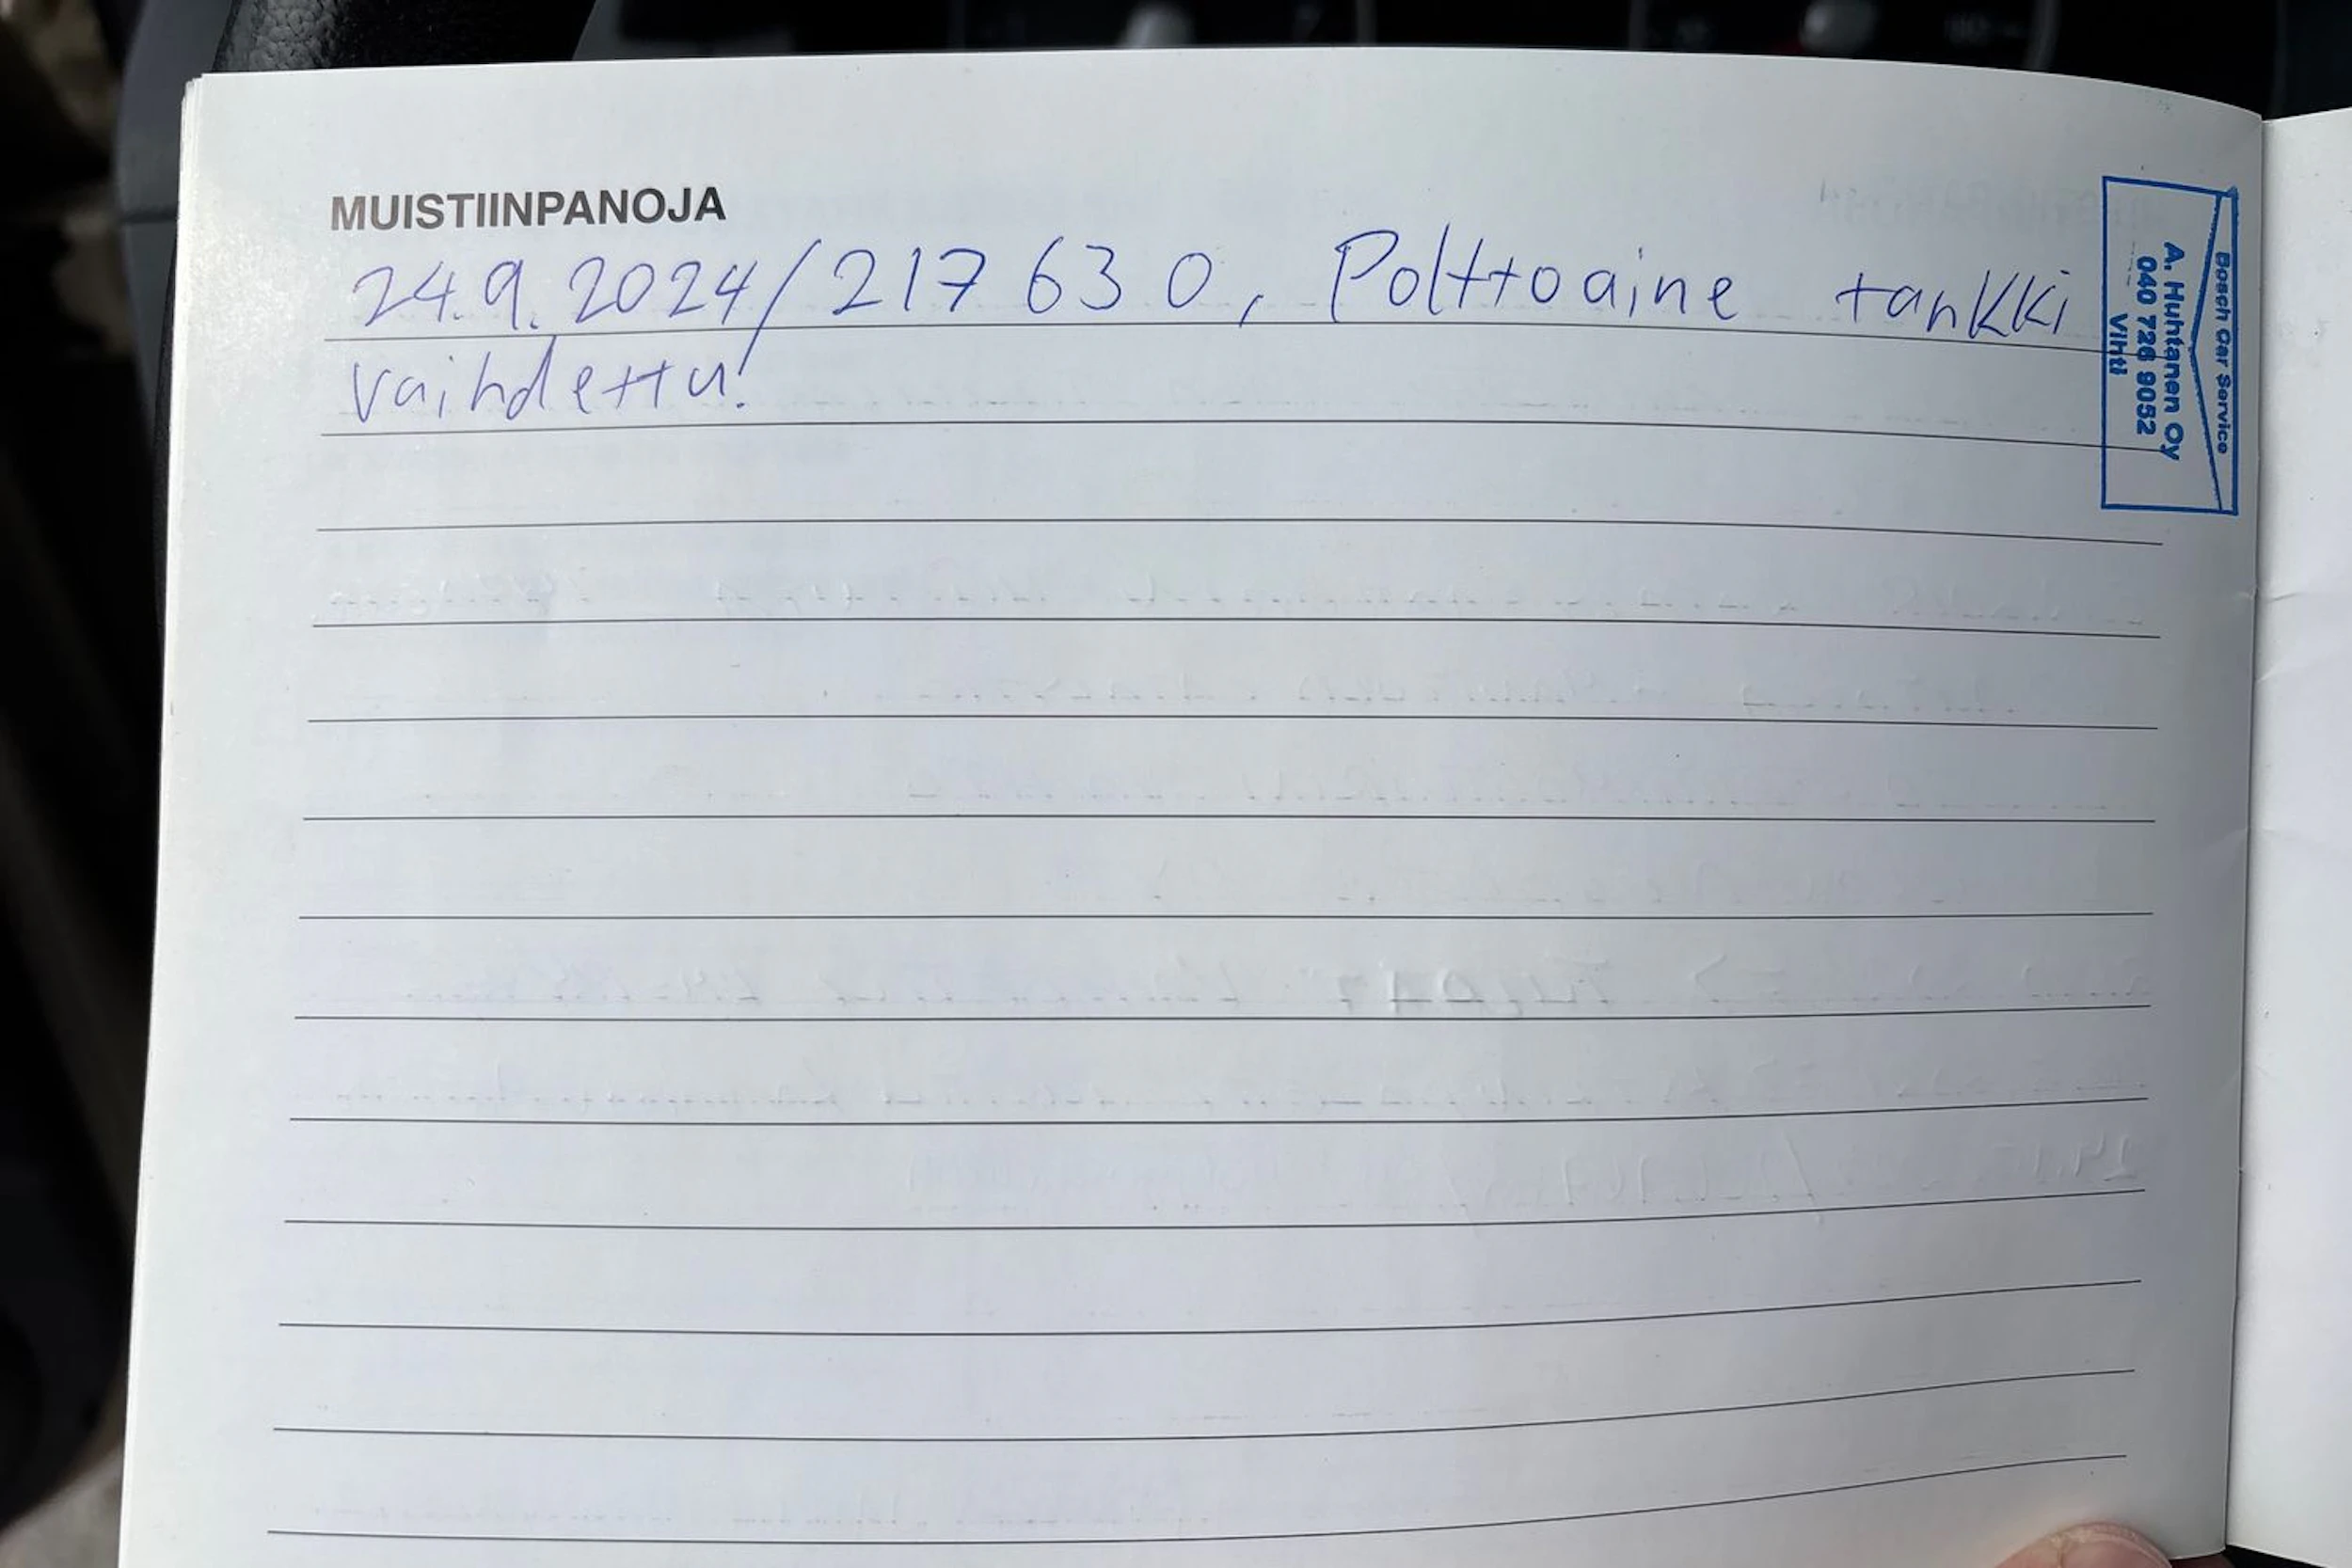 MUISTIINPANOJA
24.9.2024/217 630, Polttoaine tankki
vaihdettu!
Bosch Car Service
A. Huhtanen Oy
040 726 9052
Vihti